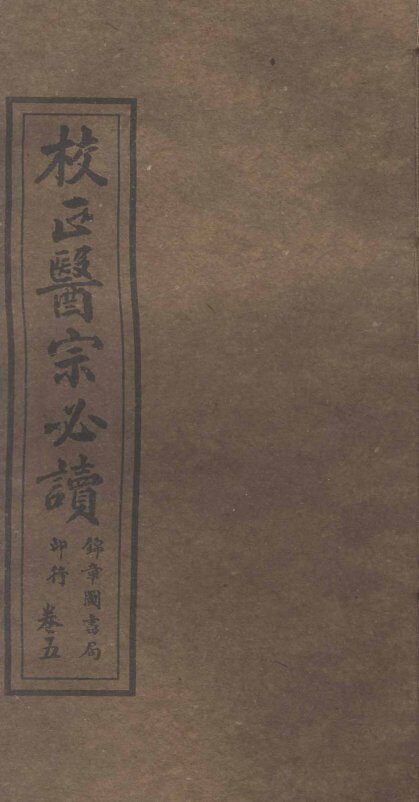 校正醫宗必讀
錦章圖書局
印行
卷五